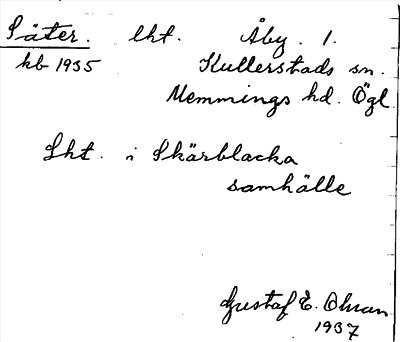 Säter. lht. Åby. 1.
kb 1935 Kullerstads sn.
Memmings hd. Ögl
Lht. i Skärblacka
samhälle
Gustaf E. Ohman
1937